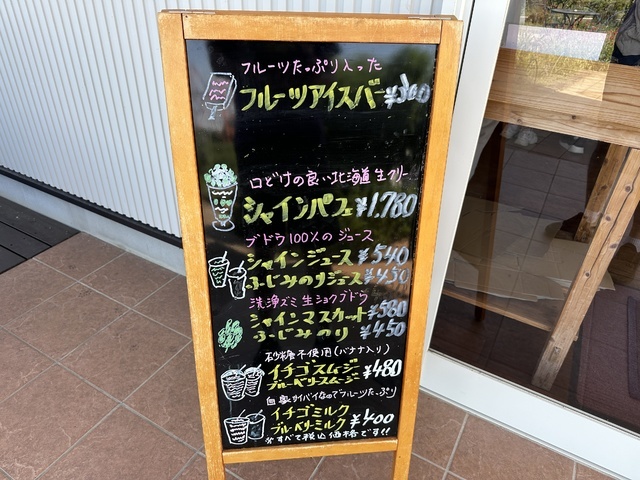 フルーツたっぷり入った
フルーツアイスバー ¥300
口どけの良い北海道生クリー
シャインパフェ ¥1.780
ブドウ100%のジュース
シャインジュース ¥540
ふじみのりジュース ¥450
洗浄ズミ生ショクブドウ
シャインマスカット ¥580
ふじみのり ¥450
砂糖不使用(バナナ入り)
イチゴスムジー ¥480
ブルーベリースムージー
自家サイバイなのでフルーツたっぷり
イチゴミルク ¥400
ブルーベリミルク
※すべて税込価格です!!